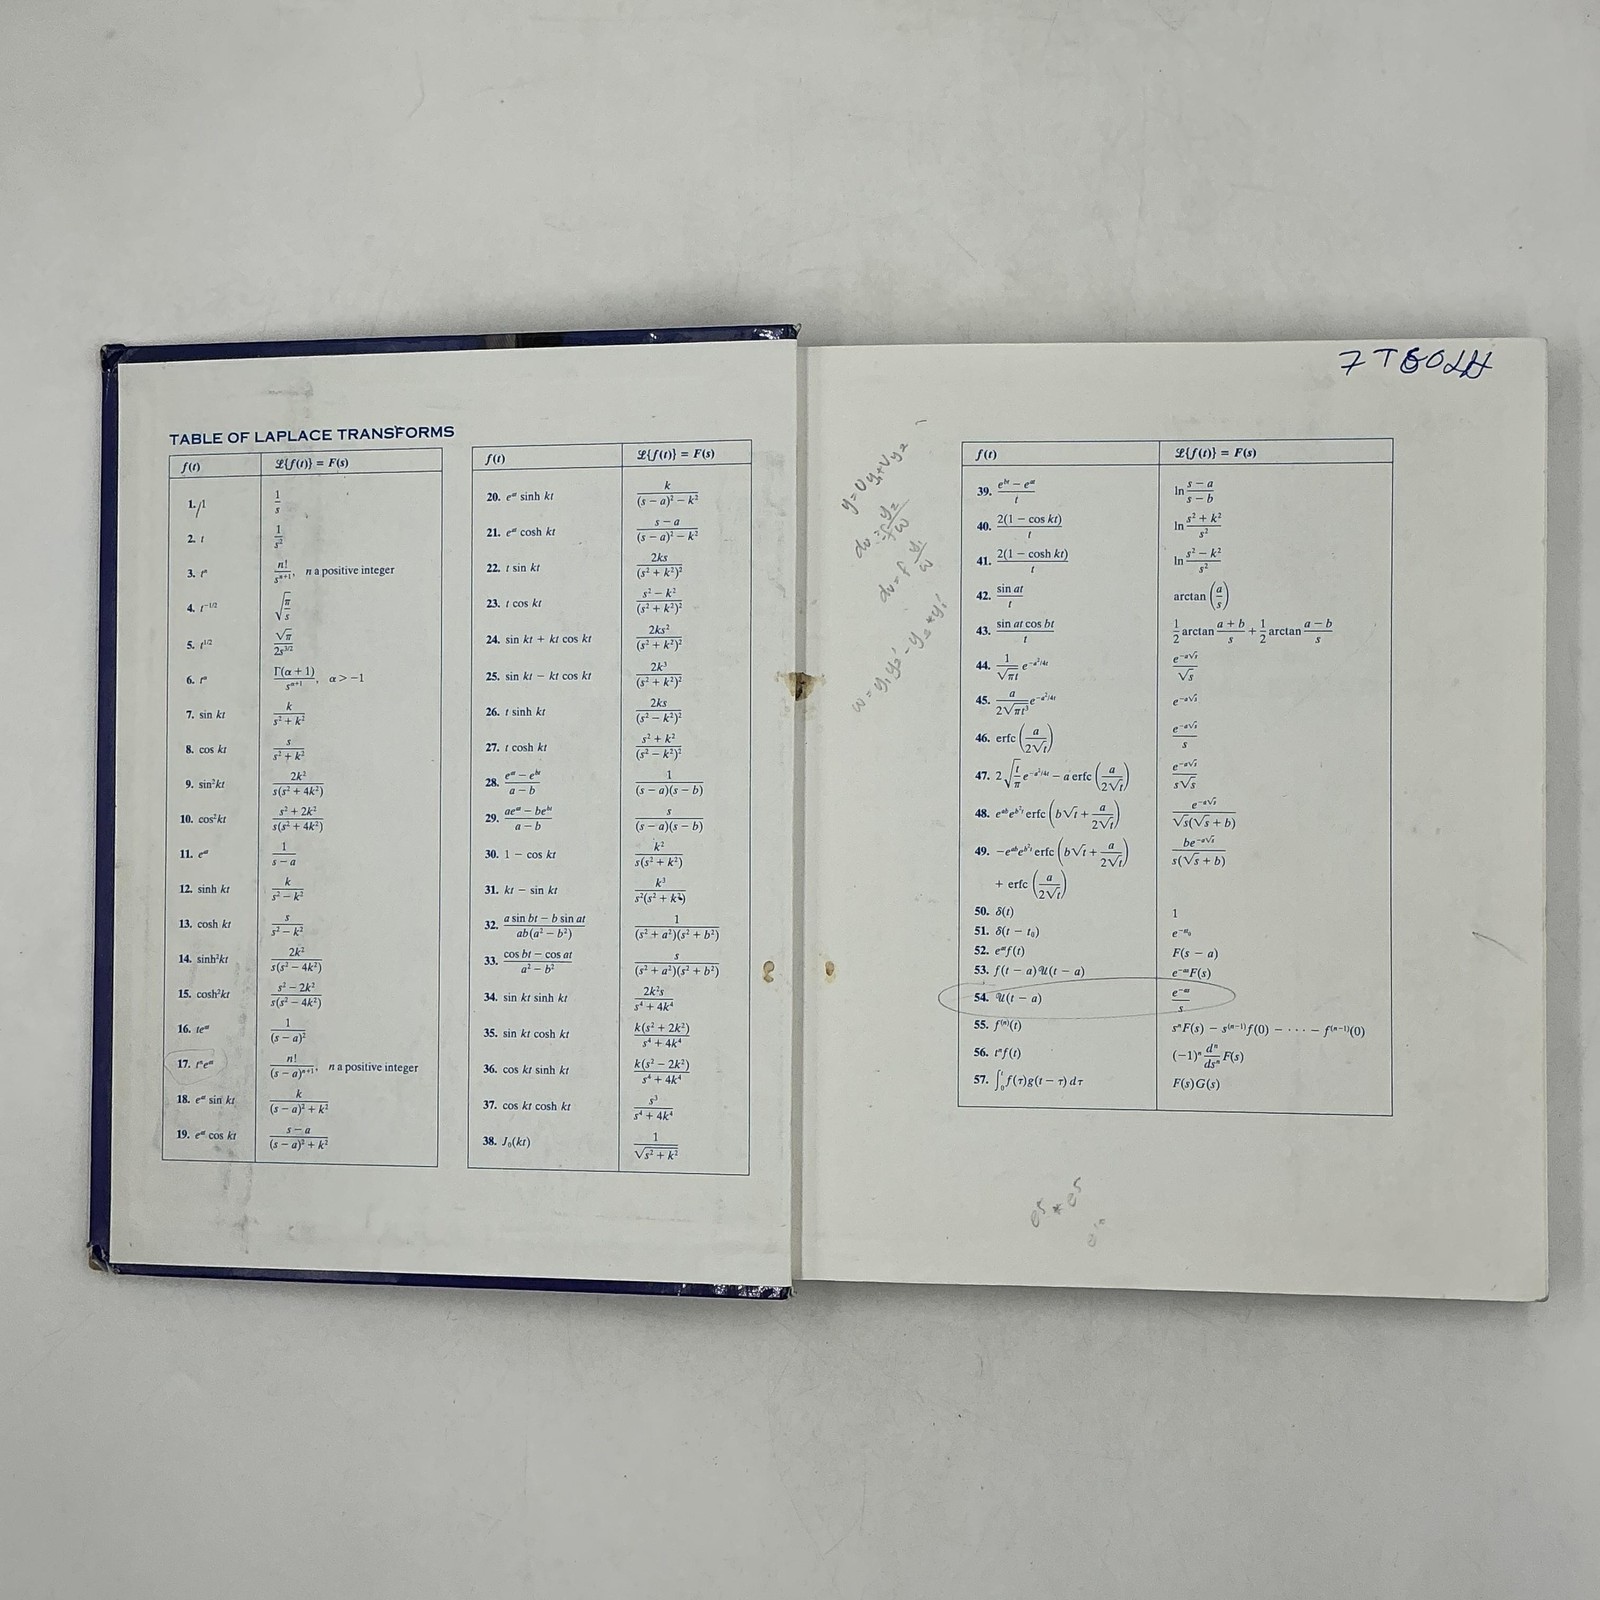 TABLE OF LAPLACE TRANSFORMS
f(t) ℒ{f(t)} = F(s)
1. 1 1/s
2. t 1/s²
3. tⁿ n!/sⁿ⁺¹, n a positive integer
4. t⁻¹/² √(π/s)
5. t¹/² √π/(2s³/²)
6. tᵅ Γ(α + 1)/sᵅ⁺¹, α > −1
7. sin kt k/(s² + k²)
8. cos kt s/(s² + k²)
9. sin²kt 2k²/(s(s² + 4k²))
10. cos²kt (s² + 2k²)/(s(s² + 4k²))
11. eᵃᵗ 1/(s − a)
12. sinh kt k/(s² − k²)
13. cosh kt s/(s² − k²)
14. sinh²kt 2k²/(s(s² − 4k²))
15. cosh²kt (s² − 2k²)/(s(s² − 4k²))
16. teᵃᵗ 1/(s − a)²
17. tⁿeᵃᵗ n!/(s − a)ⁿ⁺¹, n a positive integer
18. eᵃᵗ sin kt k/((s − a)² + k²)
19. eᵃᵗ cos kt (s − a)/((s − a)² + k²)
f(t) ℒ{f(t)} = F(s)
20. eᵃᵗ sinh kt k/((s − a)² − k²)
21. eᵃᵗ cosh kt (s − a)/((s − a)² − k²)
22. t sin kt 2ks/(s² + k²)²
23. t cos kt (s² − k²)/(s² + k²)²
24. sin kt + kt cos kt 2ks²/(s² + k²)²
25. sin kt − kt cos kt 2k³/(s² + k²)²
26. t sinh kt 2ks/(s² − k²)²
27. t cosh kt (s² + k²)/(s² − k²)²
28. (eᵃᵗ − eᵇᵗ)/(a − b) 1/((s − a)(s − b))
29. (aeᵃᵗ − beᵇᵗ)/(a − b) s/((s − a)(s − b))
30. 1 − cos kt k²/(s(s² + k²))
31. kt − sin kt k³/(s²(s² + k²))
32. (a sin bt − b sin at)/(ab(a² − b²)) 1/((s² + a²)(s² + b²))
33. (cos bt − cos at)/(a² − b²) s/((s² + a²)(s² + b²))
34. sin kt sinh kt 2k²s/(s⁴ + 4k⁴)
35. sin kt cosh kt k(s² + 2k²)/(s⁴ + 4k⁴)
36. cos kt sinh kt k(s² − 2k²)/(s⁴ + 4k⁴)
37. cos kt cosh kt s³/(s⁴ + 4k⁴)
38. J₀(kt) 1/√(s² + k²)
y = Uy₁ + Vy₂
w = y₁y₂' − y₂*y₁'
f(t) ℒ{f(t)} = F(s)
39. (eᵇᵗ − eᵃᵗ)/t ln (s − a)/(s − b)
40. 2(1 − cos kt)/t ln (s² + k²)/s²
41. 2(1 − cosh kt)/t ln (s² − k²)/s²
42. sin at/t arctan (a/s)
43. sin at cos bt/t 1/2 arctan (a + b)/s + 1/2 arctan (a − b)/s
44. 1/√(πt) e^(−a²/4t) e^(−a√s)/√s
45. a/(2√(πt³)) e^(−a²/4t) e^(−a√s)
46. erfc (a/(2√t)) e^(−a√s)/s
47. 2√(t/π) e^(−a²/4t) − a erfc (a/(2√t)) e^(−a√s)/(s√s)
48. e^(ab)e^(b²t) erfc (b√t + a/(2√t)) e^(−a√s)/(√s(√s + b))
49. −e^(ab)e^(b²t) erfc (b√t + a/(2√t)) be^(−a√s)/(s(√s + b))
+ erfc (a/(2√t))
50. δ(t) 1
51. δ(t − t₀) e^(−st₀)
52. eᵃᵗf(t) F(s − a)
53. f(t − a)𝒰(t − a) e^(−as)F(s)
54. 𝒰(t − a) e^(−as)/s
55. f⁽ⁿ⁾(t) sⁿF(s) − s⁽ⁿ⁻¹⁾f(0) − · · · − f⁽ⁿ⁻¹⁾(0)
56. tⁿf(t) (−1)ⁿ dⁿ/dsⁿ F(s)
57. ∫₀ᵗ f(τ)g(t − τ) dτ F(s)G(s)
e⁵ * e⁵